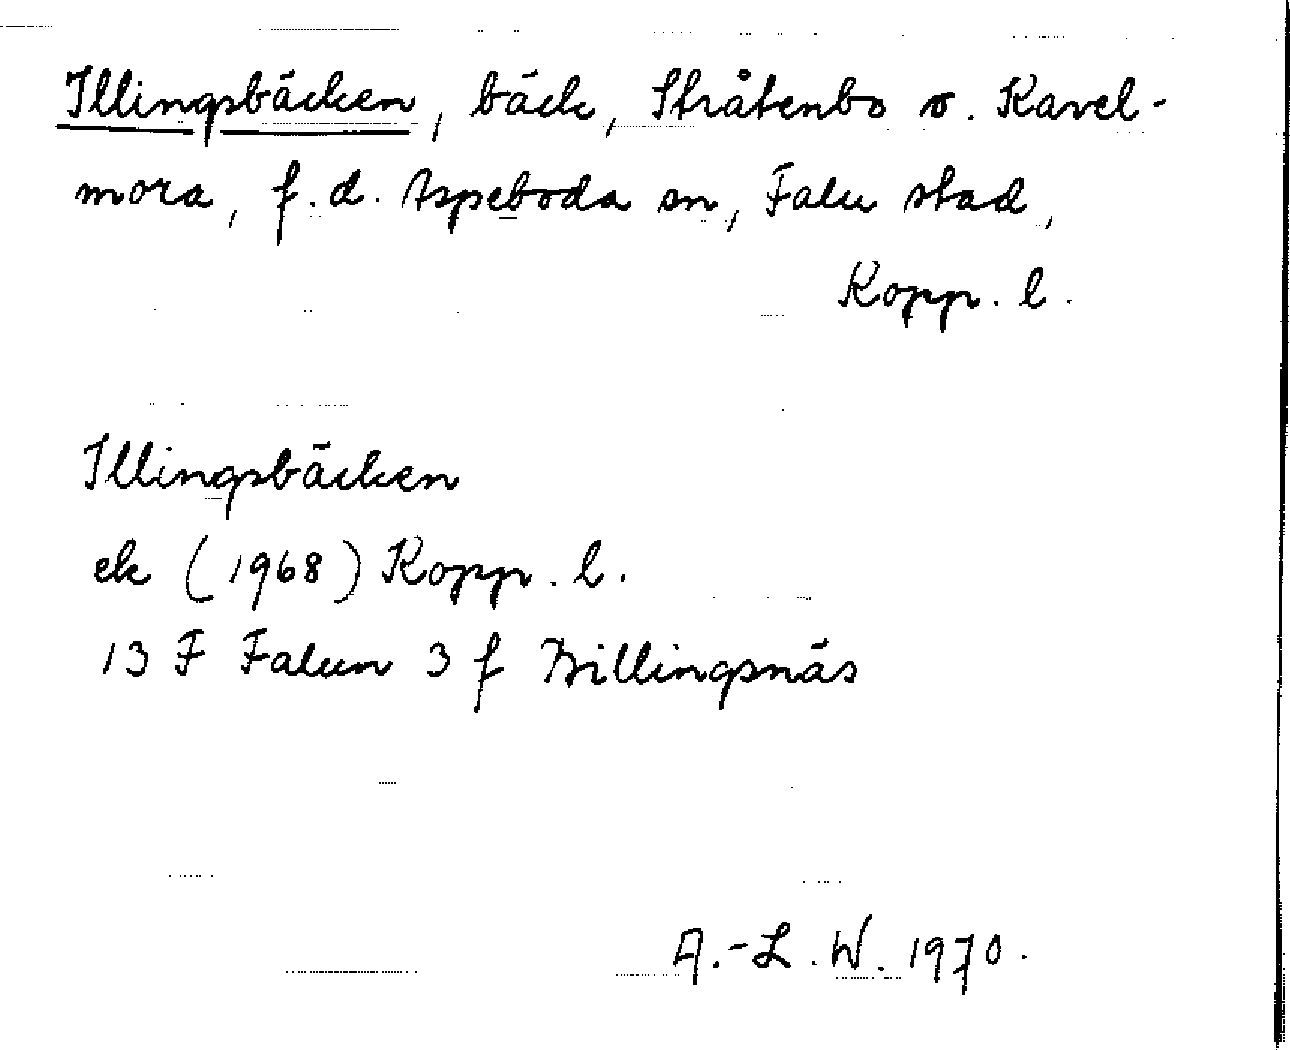 Illingsbäcken, bäck, Stråtenbo o. Kavel-
mora, f.d. Aspeboda sn, Falu stad,
Kopp. l.
Illingsbäcken
ek (1968) Kopp. l.
13 F Falun 3 f Billingsnäs
A.-L. W. 1970.